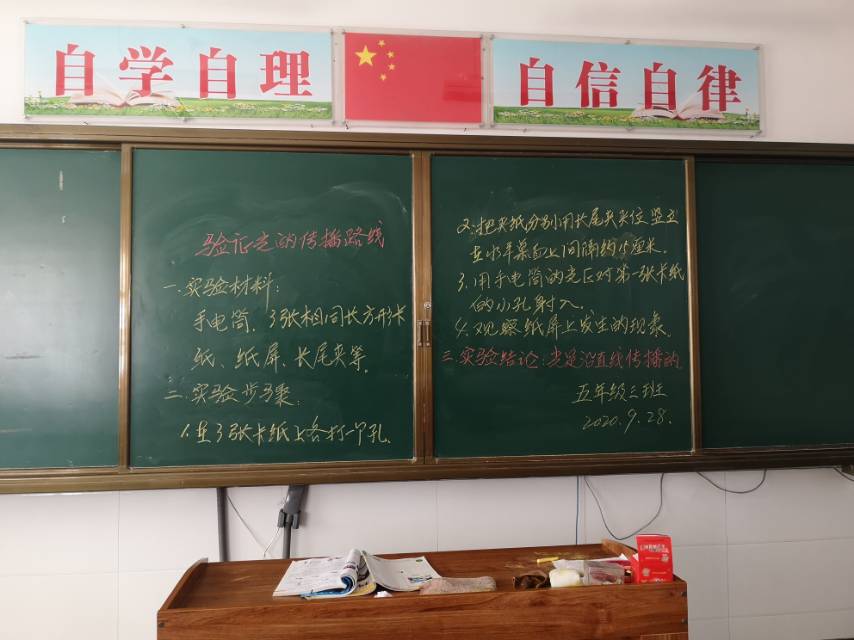 自学自理
自信自律
验证光的传播路线
一.实验材料:
手电筒、3张相同长方形卡
纸、纸屏、长尾夹等。
二.实验步骤:
1.在3张卡纸上各打一个孔.
2.把夹纸分别用长尾夹夹住竖立
在水平桌面上间隔约15厘米.
3.用手电筒的光区对第一张卡纸
的小孔射入.
4.观察纸屏上发生的现象.
三.实验结论:光是沿直线传播的
五年级三班
2020.9.28.